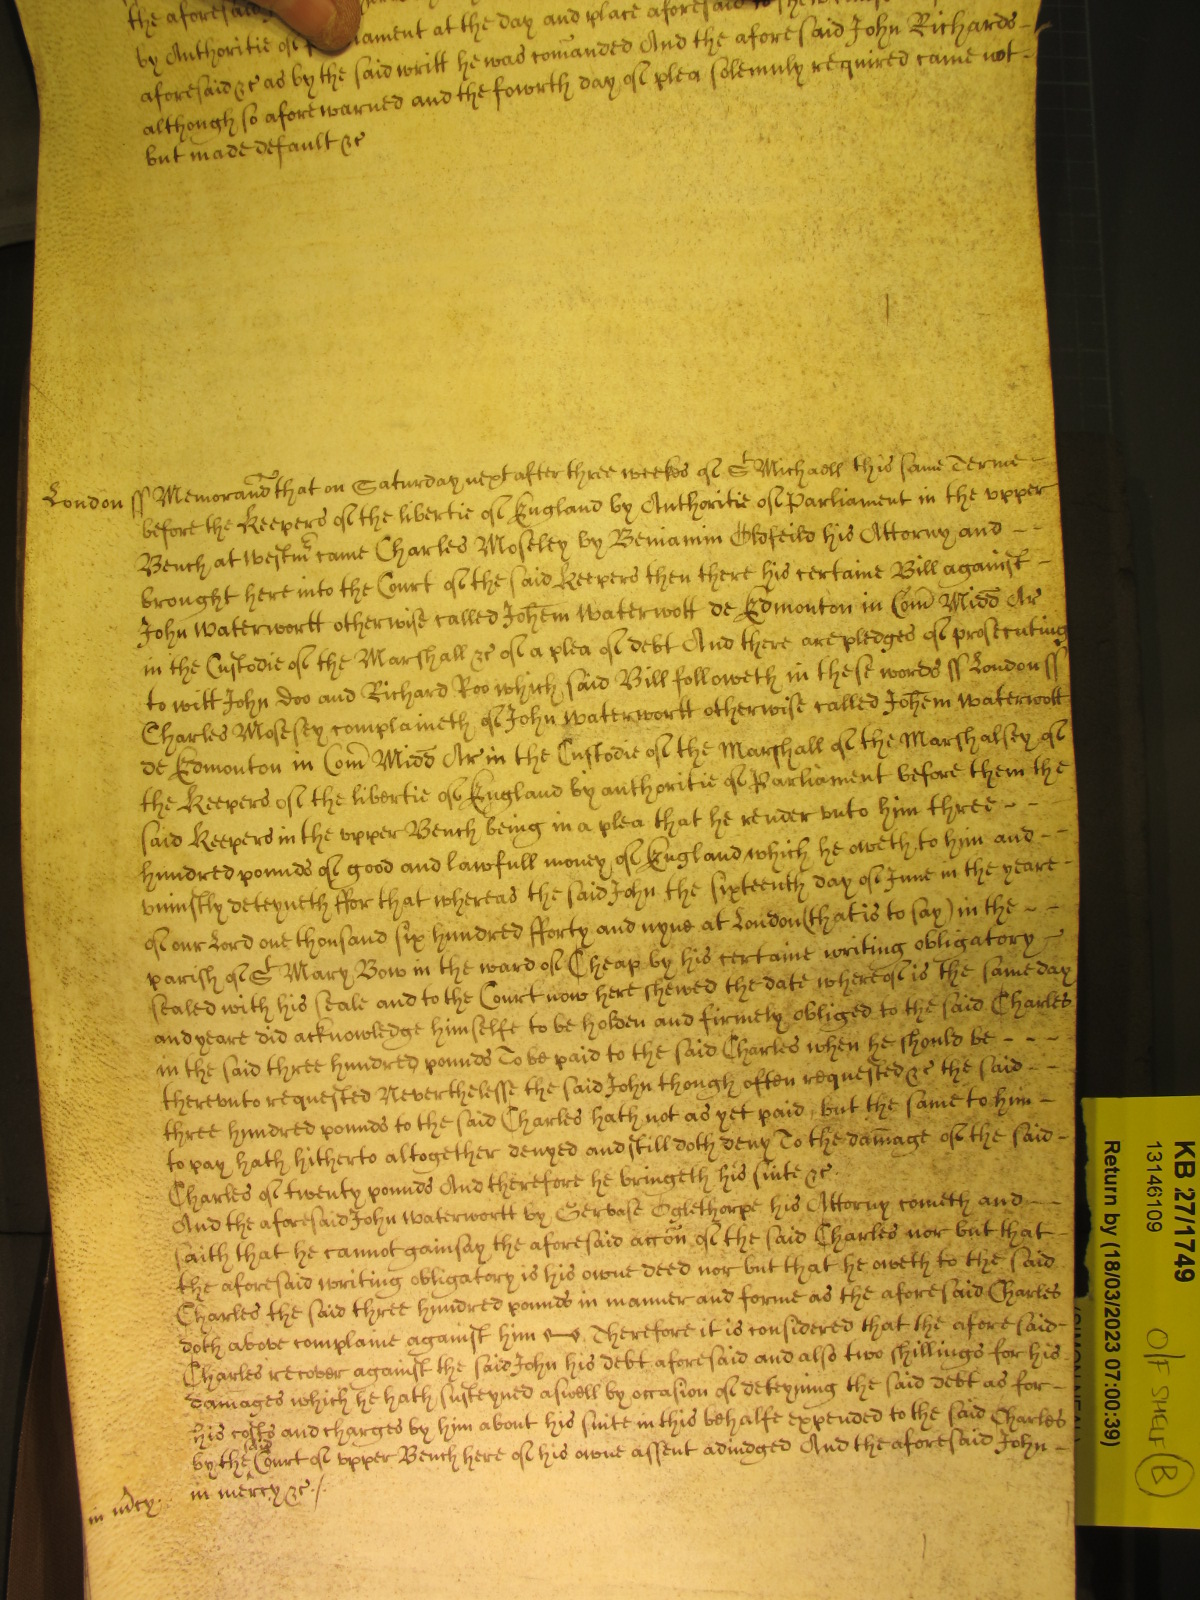 the aforesaid
by Authoritie of Parliament at the day and place aforesaid to shew
aforesaid &c as by the said writt he was comanded And the aforesaid John Richards -
although so aforewarned and the fowrth day of plea solemnly required came not -
but made default &c
London ss Memorand that on Saturday next after three weeks of St Michaell this same Terme -
before the Keepers of the libertie of England by Authoritie of Parliament in the upper
Bench at Westmr came Charles Moseley by Beniamin Oldfeild his Attorny and - -
brought here into the Court of the said Keepers then there his certaine Bill against -
John Waterwortt otherwise called Johem Waterwott de Edmonton in Com Midd Ar
in the Custodie of the Marshall &c of a plea of debt And there are pledges of prosecuting
to witt John Doo and Richard Roo which said Bill followeth in these words ss London ss
Charles Mosesey complaineth of John Waterwortt otherwise called Johem Waterwott
de Edmonton in Com Midd Ar in the Custodie of the Marshall of the Marshalsey of
the Keepers of the libertie of England by authoritie of Parliament before them the
said Keepers in the upper Bench being in a plea that he render unto him three - -
hundred pounds of good and lawfull money of England which he oweth to him and - -
uniustly deteyneth ffor that whereas the said John the sixteenth day of June in the yeare -
of our Lord one thousand six hundred fforty and nyne at London (that is to say) in the - -
parish of St Mary Bow in the ward of Cheap by his certaine writing obligatory -
sealed with his seale and to the Court now here shewed the date whereof is the same day
and yeare did acknowledge himselfe to be holden and firmely obliged to the said Charles
in the said three hundred pounds To be paid to the said Charles when he should be - - - -
thereunto requested Neverthelesse the said John though often requested &c the said - -
three hundred pounds to the said Charles hath not as yet paid, but the same to him -
to pay hath hitherto altogether denyed and still doth deny To the damage of the said -
Charles of twenty pounds And therefore he bringeth his suite &c.
And the aforesaid John Waterwortt by Gervase Oglethorpe his Attorny cometh and -
saith that he cannot gainsay the aforesaid accon of the said Charles nor but that -
the aforesaid writing obligatory is his owne deed nor but that he oweth to the said
Charles the said three hundred pounds in manner and forme as the aforesaid Charles
doth above complaine against him Therefore it is considered that the aforesaid -
Charles recover against the said John his debt aforesaid and also two shillings for his
damages which he hath susteyned aswell by occasion of deteyning the said debt as for -
his costs and charges by him about his suite in this behalfe expended to the said Charles
by the said Court of upper Bench here of his owne assent adiudged And the aforesaid John -
in mcy. in mercy &c ./.
KB 27/1749
13146109
Return by (18/03/2023 07:00:39)
O/F SHELF B